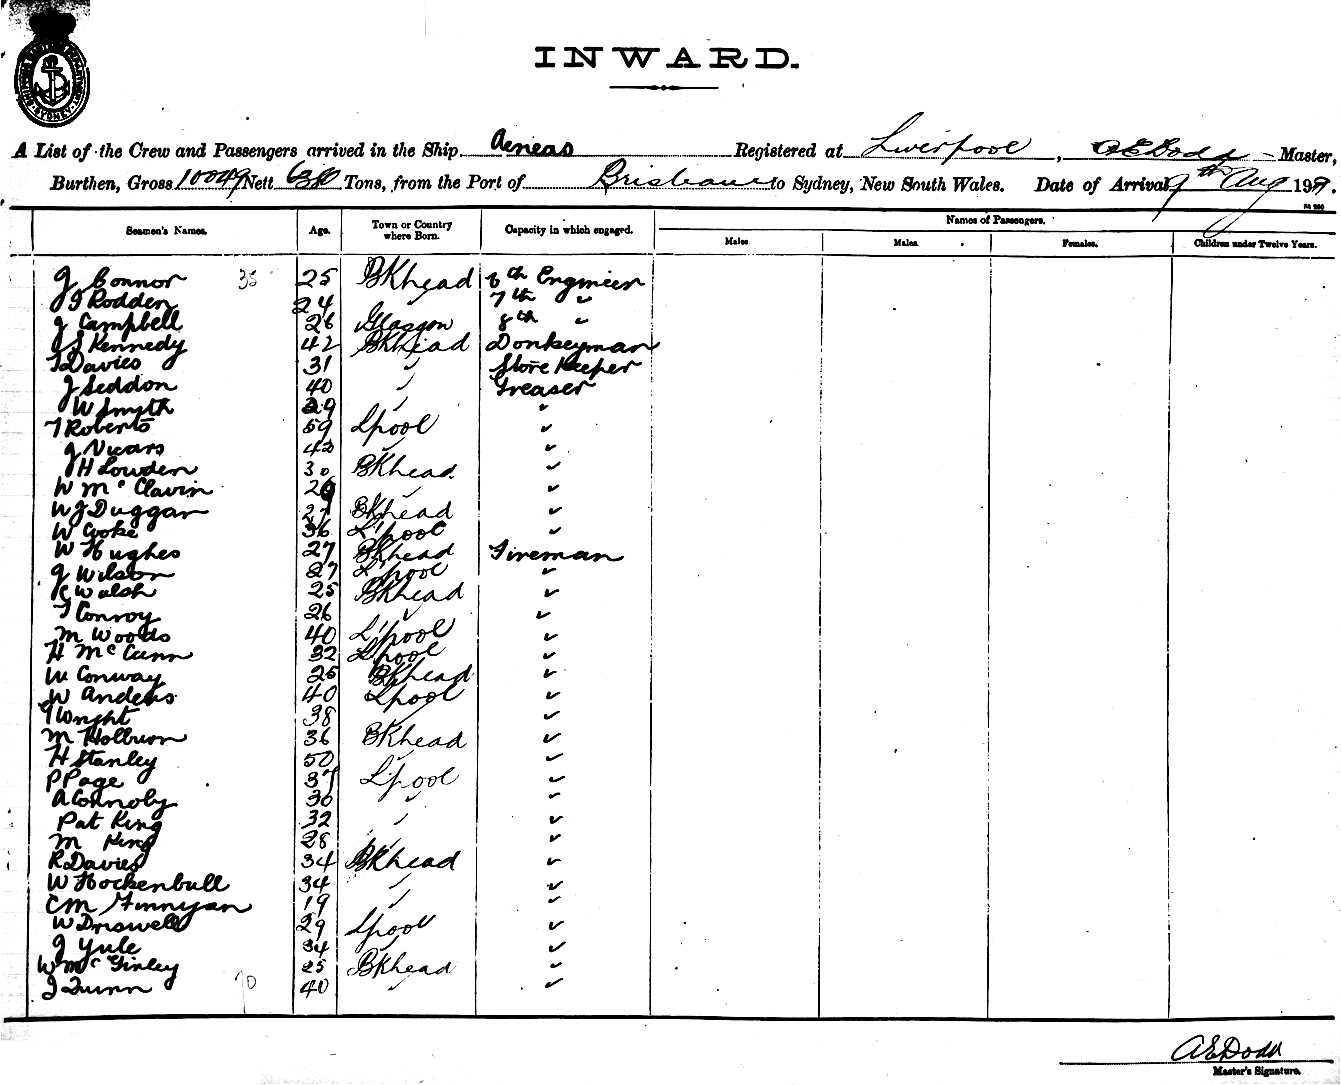 INWARD.
A List of the Crew and Passengers arrived in the Ship Aeneas Registered at Liverpool, A E Dodd Master,
Burthen, Gross 10049 Nett Tons, from the Port of Brisbane to Sydney, New South Wales. Date of Arrival 9th Aug 191
Seamen's Names. Age. Town or Country where Born. Capacity in which engaged. Names of Passengers.
Males Males. Females. Children under Twelve Years.
J Connor 35 25 BKhead 6th Engineer
J J Rodden 24 " 7th "
J Campbell 26 Glasgow 8th "
J S Kennedy 42 BKhead Donkeyman
T Davies 31 " Store Keeper
J Seddon 40 " Greaser
W Smyth 29 " "
T Roberts 59 Lpool "
J Vicars 42 " "
J H Lowden 30 BKhead "
W McClavin "
W J Duggan 27 BKhead "
W Cooke 36 L'pool "
W Hughes 27 BKhead Fireman
J Wilson 27 L'pool "
R Walsh 25 BKhead "
T Conroy 26 " "
M Woods 40 L'pool "
H McCann 32 Lpool "
W Conway 25 BKhead "
W Anders 40 Lpool "
T Wright 38 "
M Holburn 36 BKhead "
H Stanley 50 " "
P Page 37 L'pool "
A Connoly 30 " "
Pat King 32 " "
M King 28 " "
R Davies 34 BKhead "
W Hockenbull 34 " "
C M Finnyan 19 " "
W Driswell 29 Lpool "
J Yule 34 " "
W McGinley 25 BKhead "
J Quinn 70 40 " "
A E Dodd
Master's Signature.